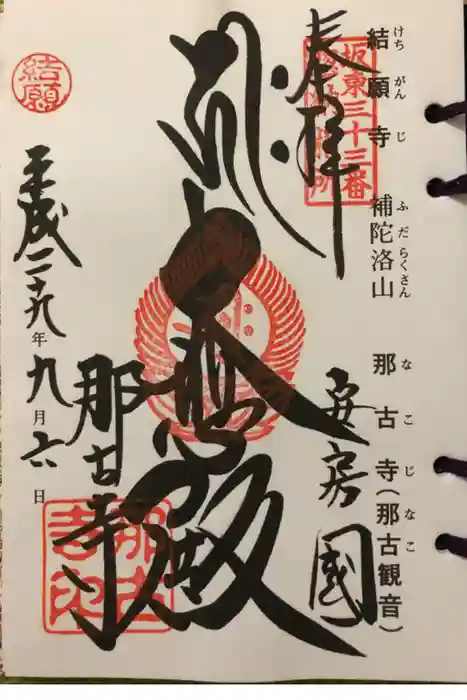 結願寺 補陀洛山 那古寺(那古観音)
けち がん じ ふ だ らく さん な こ じ な こ
奉拝
坂東三十三番
安房國
大悲殿
那古寺
平成二十九年九月六日
結願